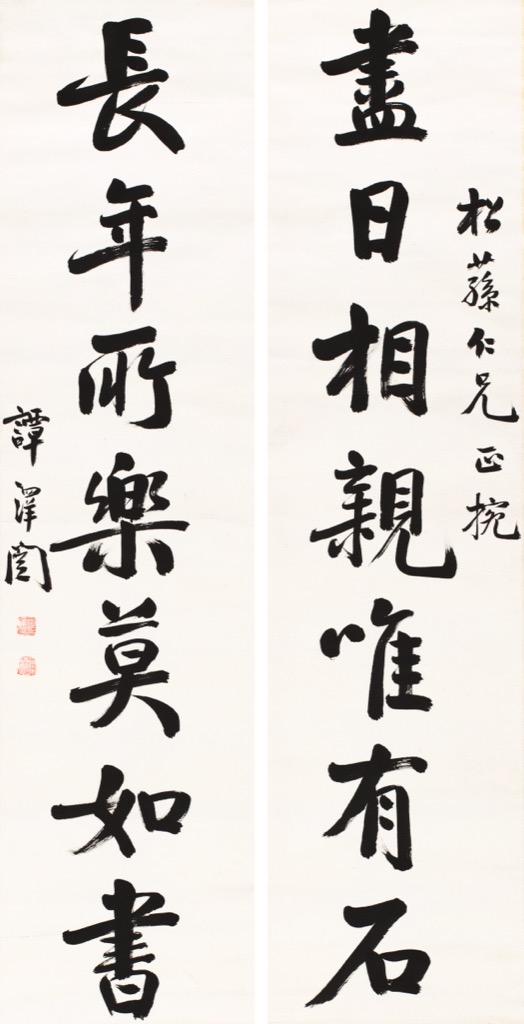 盡日相親唯有石
松蓀仁兄正捥
長年所樂莫如書
譚澤闓